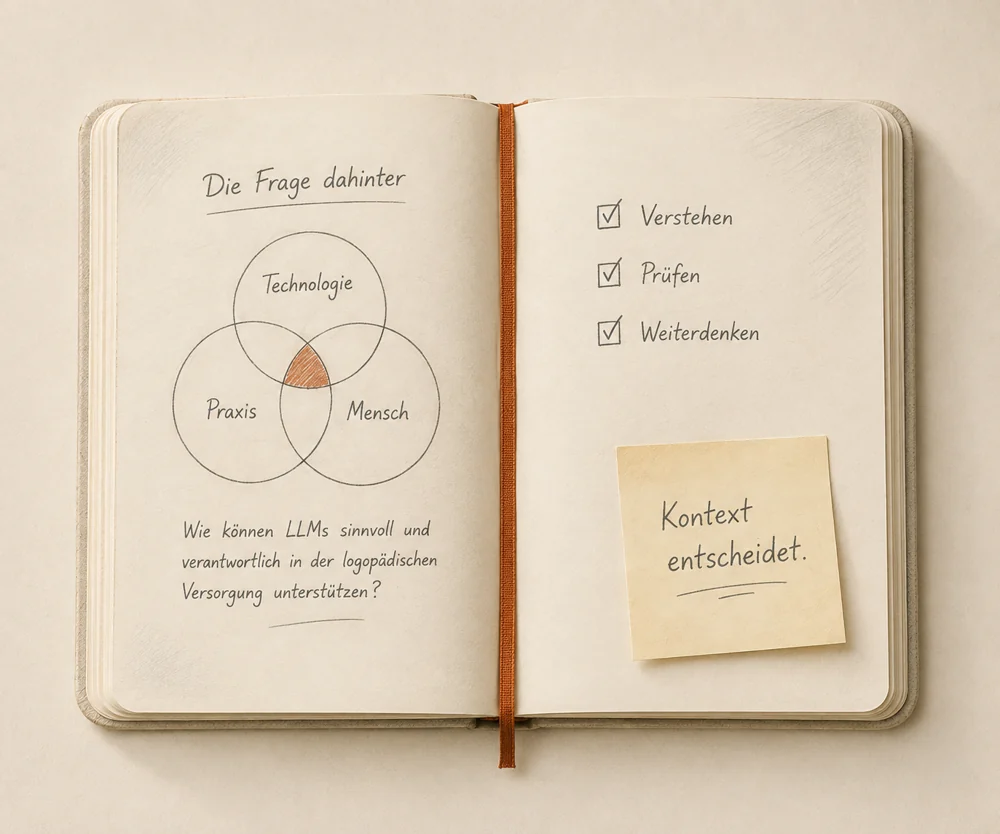 Die Frage dahinter
Technologie
Praxis
Mensch
Wie können LLMs sinnvoll und
verantwortlich in der logopädischen
Versorgung unterstützen?
Verstehen
Prüfen
Weiterdenken
Kontext
entscheidet.